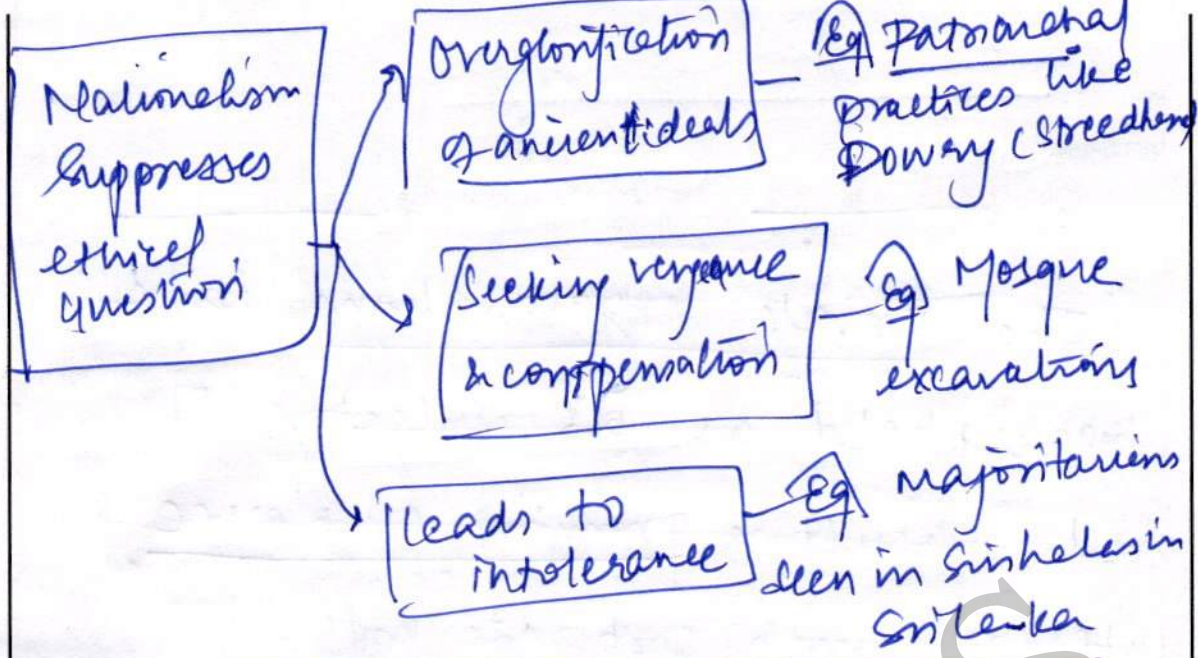 Nationalism
Suppresses
ethical
question
Overglorification
of ancient ideals
Eg Patriarchal
practices like
Dowry (Streedhan)
Seeking vengeance
& compensation
Eg Mosque
excavations
leads to
intolerance
Eg majoritarians
seen in Sinhalas in
Sri Lanka